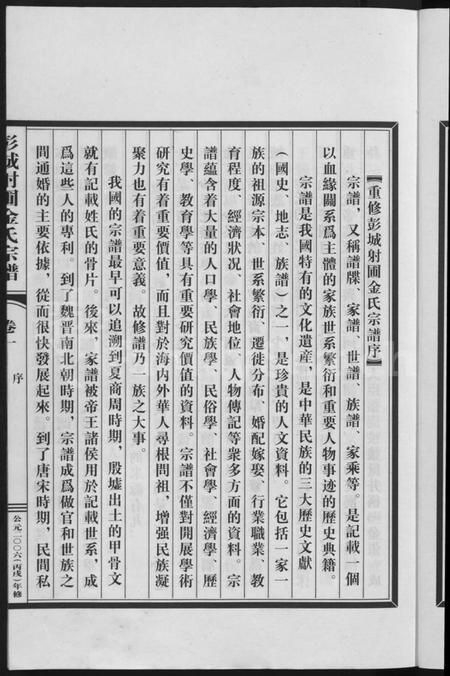 【重修彭城射圃金氏宗譜序】
宗譜，又稱譜牒、家譜、世譜、族譜、家乘等。是記載一個
以血緣關系爲主體的家族世系繁衍和重要人物事迹的歷史典籍。
宗譜是我國特有的文化遺産，是中華民族的三大歷史文獻
（國史、地志、族譜）之一，是珍貴的人文資料。它包括一家一
族的祖源宗本、世系繁衍、遷徙分布、婚配嫁娶、行業職業、教
育程度、經濟狀况、社會地位、人物傳記等衆多方面的資料。宗
譜蘊含着大量的人口學、民族學、民俗學、社會學、經濟學、歷
史學、教育學等具有重要研究價值的資料。宗譜不僅對開展學術
研究有着重要價值，而且對於海内外華人尋根問祖，增强民族凝
聚力也有着重要意義。故修譜乃一族之大事。
我國的宗譜最早可以追溯到夏商周時期，殷墟出土的甲骨文
就有記載姓氏的骨片。後來，家譜被帝王諸侯用於記載世系，成
爲這些人的專利。到了魏晋南北朝時期，宗譜成爲做官和世族之
間通婚的主要依據，從而很快發展起來。到了唐宋時期，民間私
彭城射圃金氏宗譜
卷一
序
公元二〇〇六（丙戌）年修